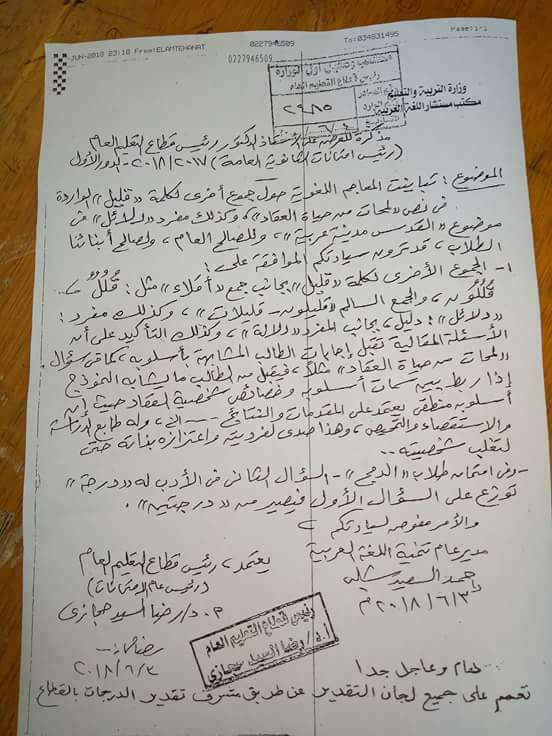 JUN-2018 23:18 From:ELAMTEHANAT 0227946509 To:034831495 Page:1/1
0227946509
وزارة التربية والتعليم
مكتب مستشار اللغة العربية
رئيس قطاع التعليم العام
٢٤٨٥
مذكرة للعرض على الأستاذ الدكتور رئيس قطاع التعليم العام
(رئيس امتحانات الثانوية العامة) ٢٠١٧/٢٠١٨ - الدور الأول
الموضوع: تباينت المعاجم اللغوية حول جموع أخرى لكلمة "قليل" الواردة
في نص "لمحات من حياة العقاد"، وكذلك مفرد "دلائل" في
موضوع "القدس مدينة عربية"، وللصالح العام، ولصالح أبنائنا
الطلاب، قد ترون سيادتكم الموافقة على:
١- الجموع الأخرى لكلمة "قليل" بجانب جمع "أقلاء" مثل: قُلُلٌ
قُلُلُون، والجمع السالم "قليلون - قليلات"، وكذلك مفرد:
"دلائل": دليل، بجانب المفرد "دلالة"، وكذلك التأكيد على أن
الأسئلة المقالية تقبل إجابات الطالب المشابهة بأسلوبه، كما في سؤال
"لمحات من حياة العقاد" مثلا، فيقبل من الطالب ما يشابه النموذج
إذا ربط بين سمات أسلوبه وخصائص شخصية العقاد حيث إن
أسلوبه منطقى يعتمد على المقدمات والنتائج وله طابع الدراسة
والاستقصاء والتمحيص، وهذا صدى لفرديته واعتزازه بذاته حتى
لتغلب شخصيته..
- وفى امتحان طلاب "الدمج" - السؤال الثانى فى الأدب له "درجة"
توزع على السؤال الأول فيصير من "درجتين".
والأمر مفوض لسيادتكم
مدير عام تنمية اللغة العربية
يعتمد، رئيس قطاع التعليم العام
(رئيس عام الامتحانات)
أحمد السعيد
د/ رضا السيد حجازى
٢٠١٨/٦/٣م
رئيس قطاع التعليم العام
أ.د/ رضا السيد حجازى
٢٠١٨/٦/٣
هام وعاجل جدا
تعمم على جميع لجان التقدير عن طريق مشرف تقدير الدرجات بالقطاع